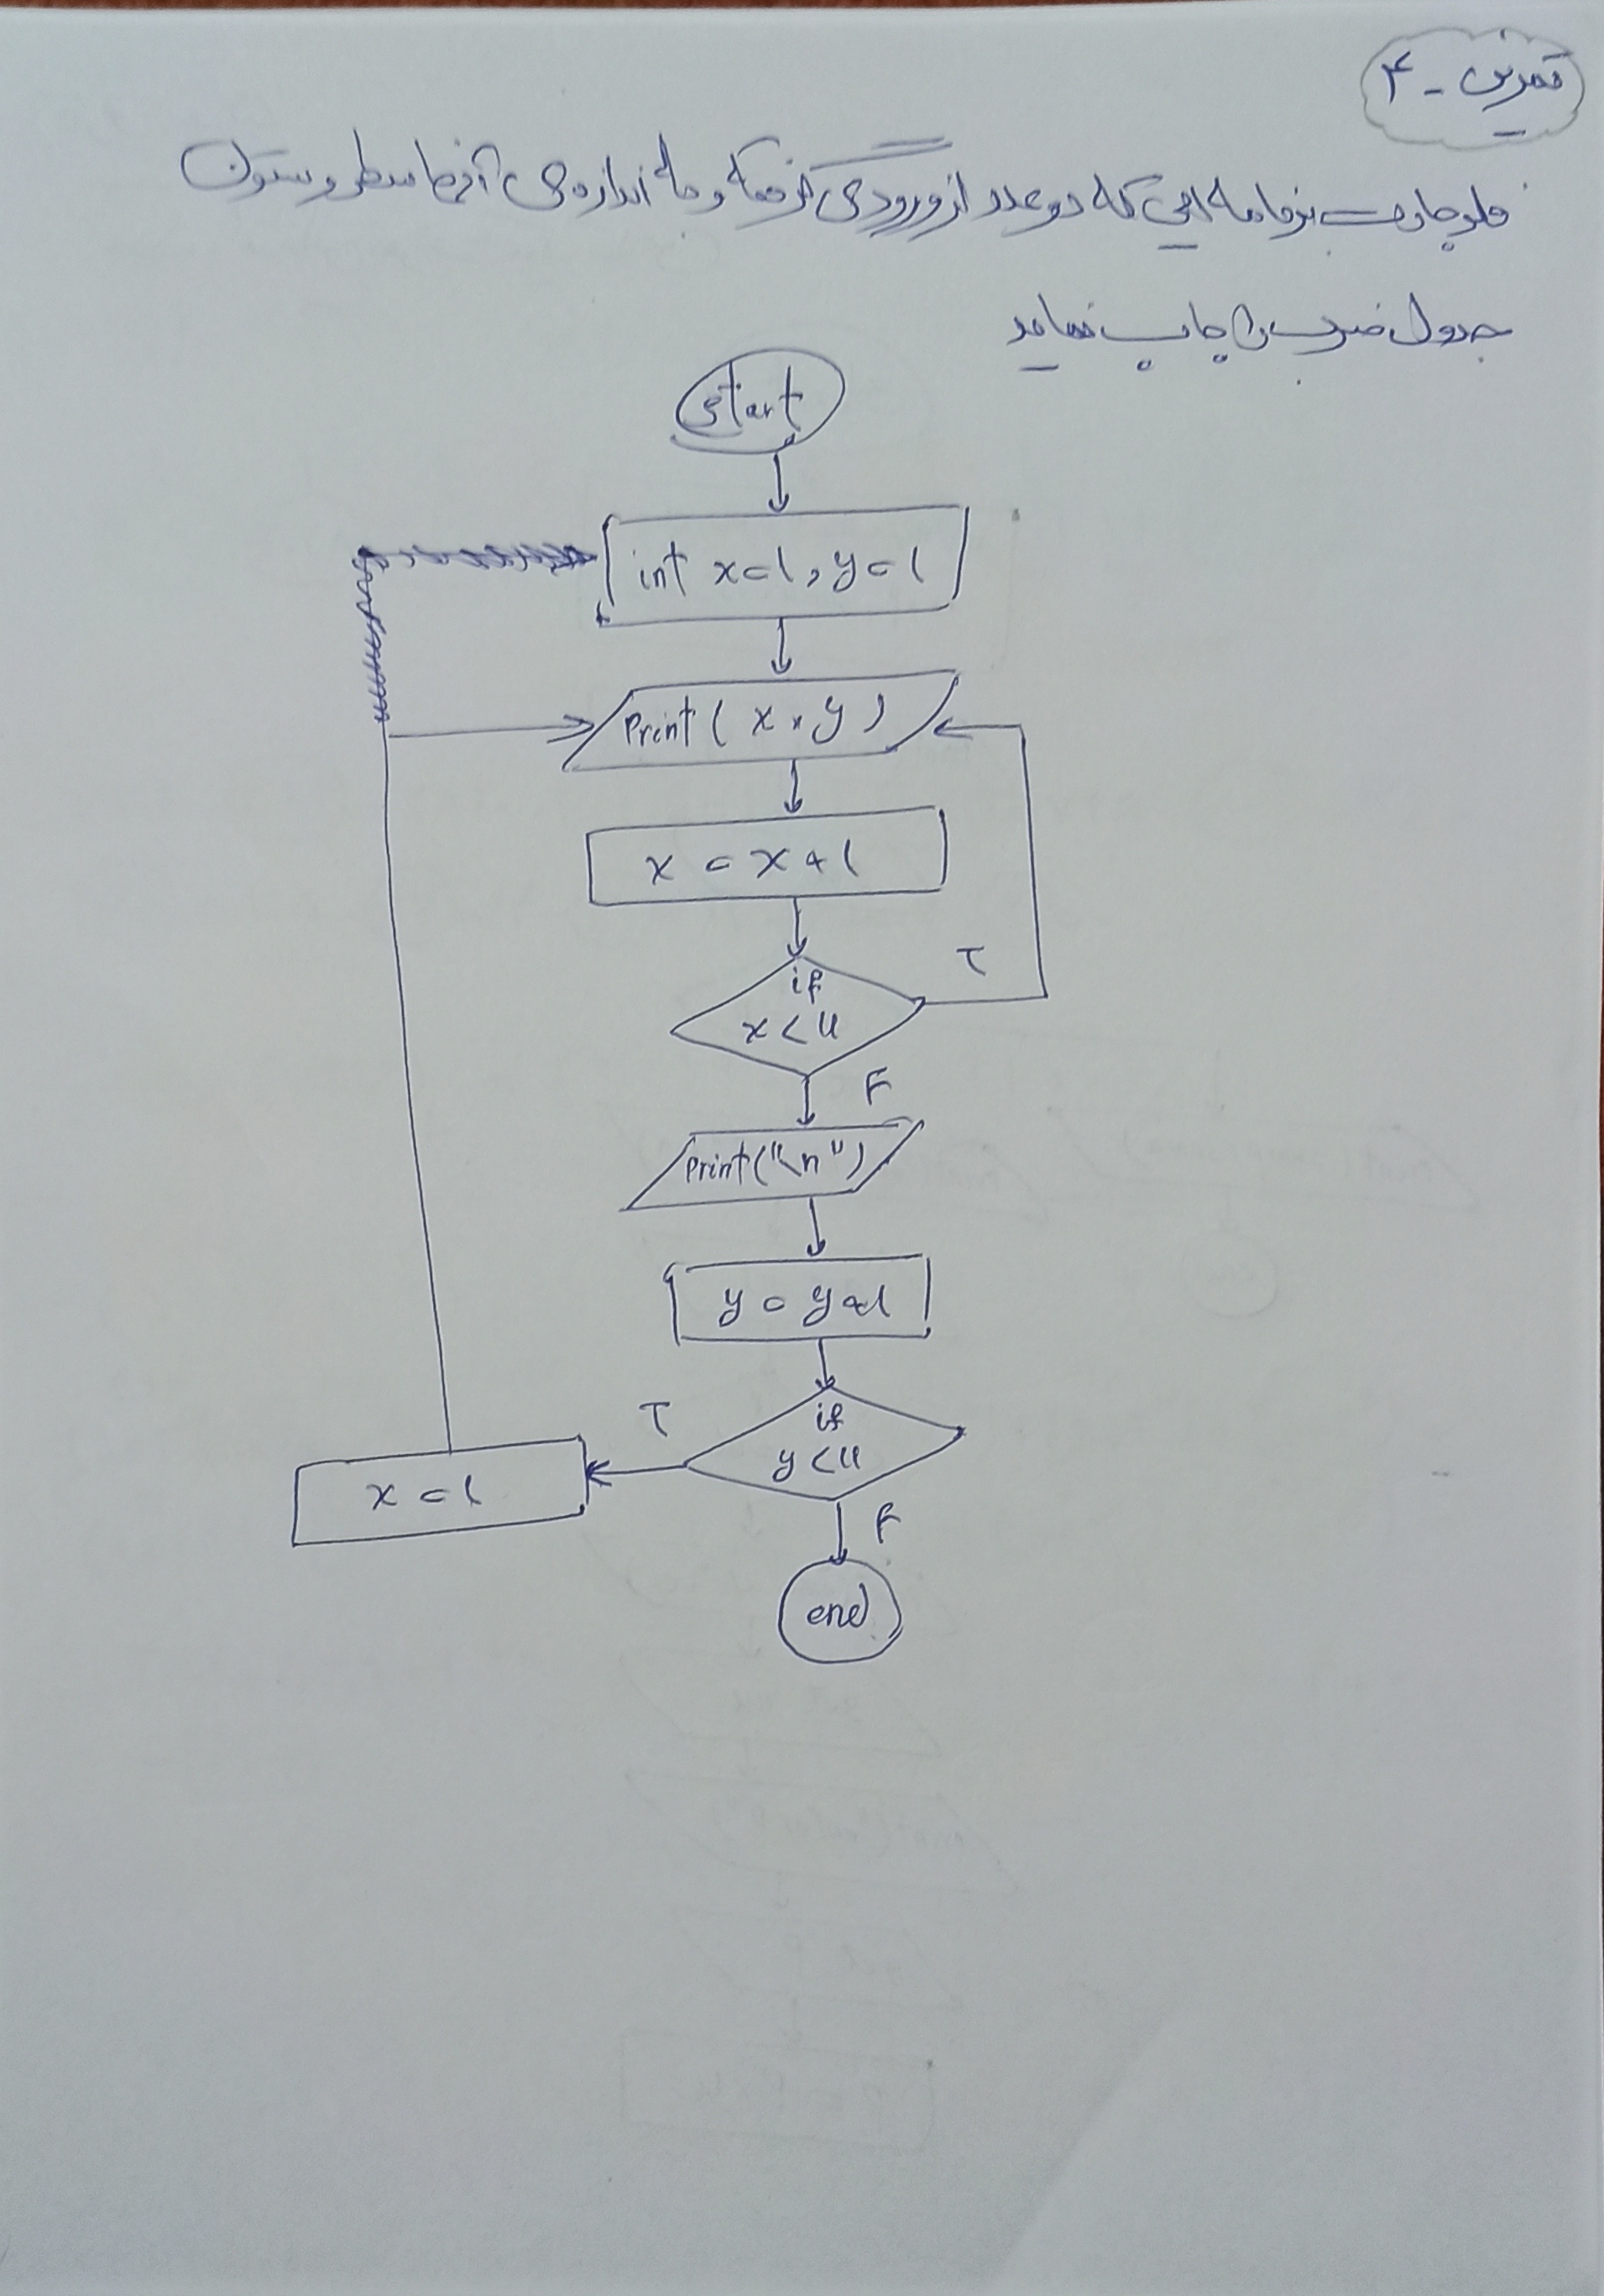 تمرین - ۴
فلوچارت برنامه ایی که دو عدد از ورودی گرفته و به اندازه ی آنها سطر و ستون
جدول ضرب را چاپ نماید
start
int x=1, y=1
Print( x * y )
x = x + 1
T
if
x < 11
F
Print("\n")
y = y + 1
if
T
y < 11
x = 1
F
end